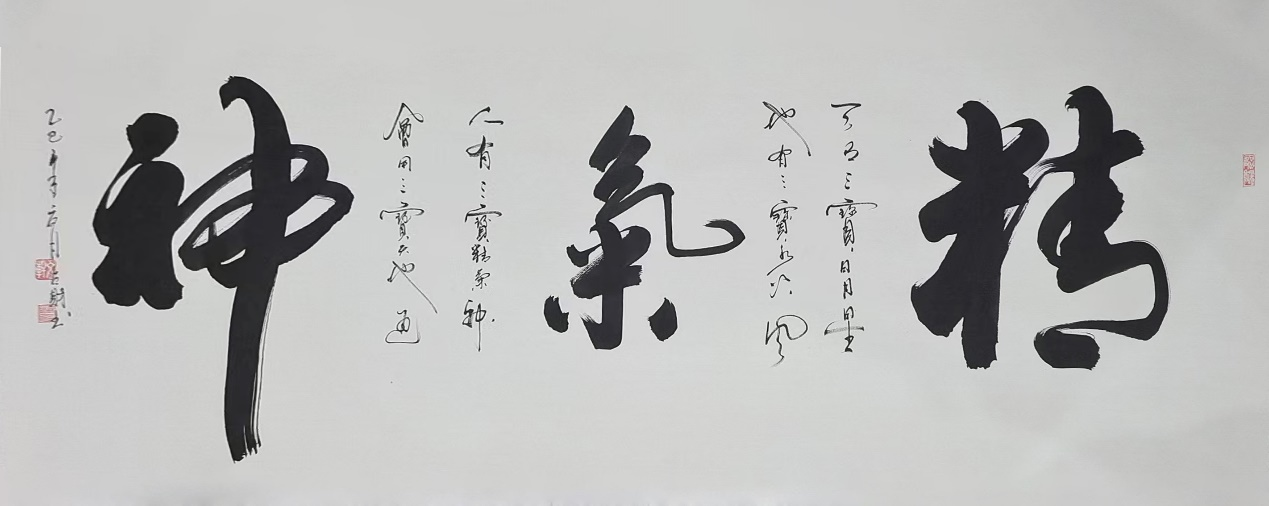 精
天有三寶日月星
地有三寶水火風
氣
人有三寶精氣神
會用三寶天地通
神
乙巳年 月